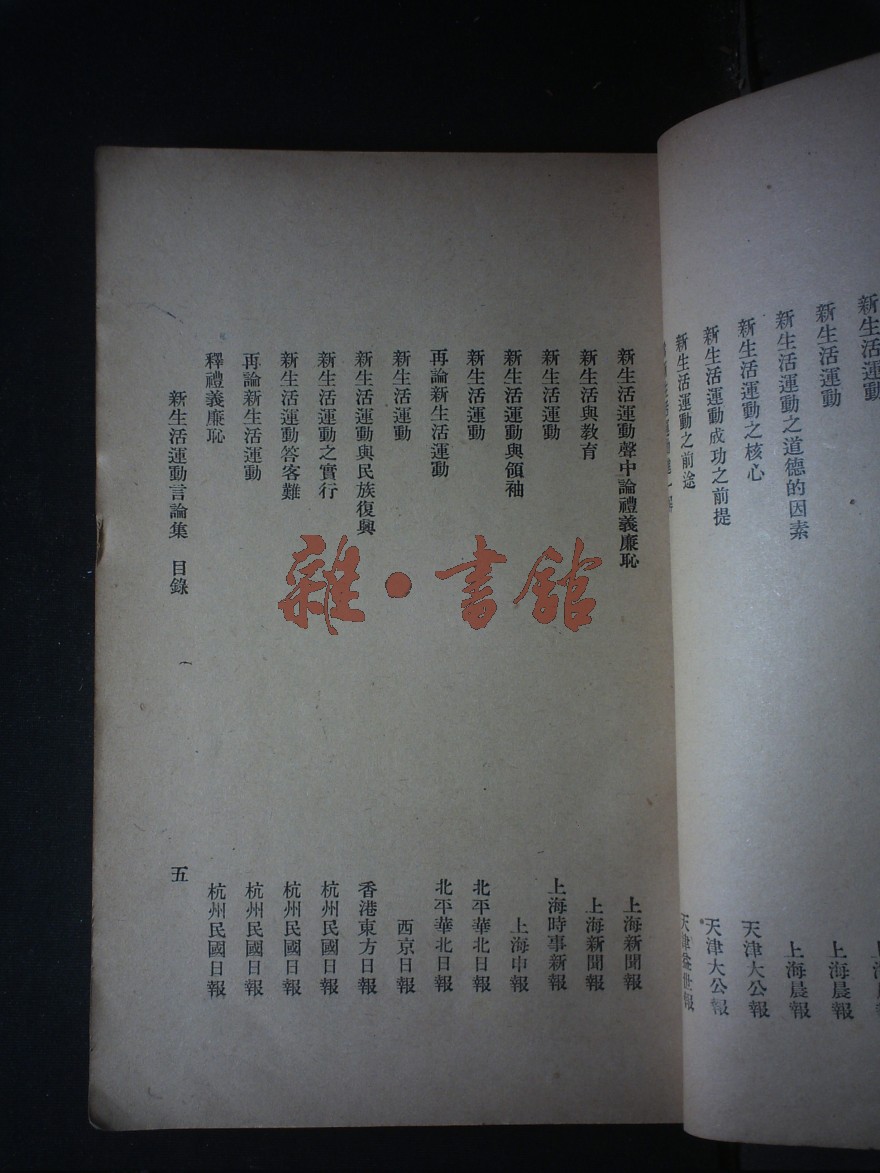 新生活運動
新生活運動
新生活運動之道德的因素
新生活運動之核心
新生活運動成功之前提
新生活運動之前途
上海晨報
上海晨報
天津大公報
天津大公報
天津益世報
新生活運動聲中論禮義廉恥 上海新聞報
新生活與教育 上海新聞報
新生活運動 上海時事新報
新生活運動與領袖 上海申報
新生活運動 北平華北日報
再論新生活運動 北平華北日報
新生活運動 西京日報
新生活運動與民族復興 香港東方日報
新生活運動之實行 杭州民國日報
新生活運動答客難 杭州民國日報
再論新生活運動 杭州民國日報
釋禮義廉恥 杭州民國日報
新生活運動言論集 目錄 五
雜·書館